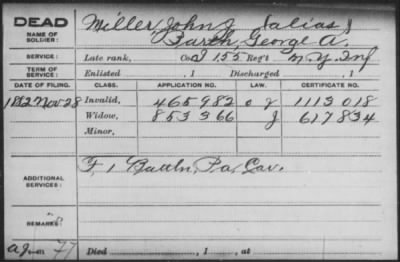 DEAD
NAME OF SOLDIER:
Miller, John J. (alias)
Barth, George A.
SERVICE: Late rank, Co. I 155 Reg't N.Y. Inf
TERM OF SERVICE: Enlisted , 1 Discharged , 1
DATE OF FILING. CLASS. APPLICATION NO. LAW. CERTIFICATE NO.
1882 Nov 28 Invalid, 465982 1113018
Widow, 853366 617834
Minor,
F, 1 Battln, Pa, Cav.
ADDITIONAL SERVICES:
REMARKS:
Died , 1 , at